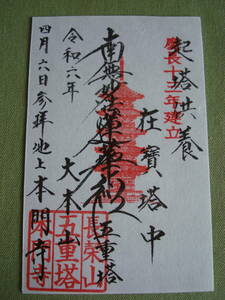 起塔供養
慶長十三年建立
在寶塔中
南無妙法蓮華経
五重塔
令和六年
大本山
四月六日参拝池上本門寺
長榮山
五重塔